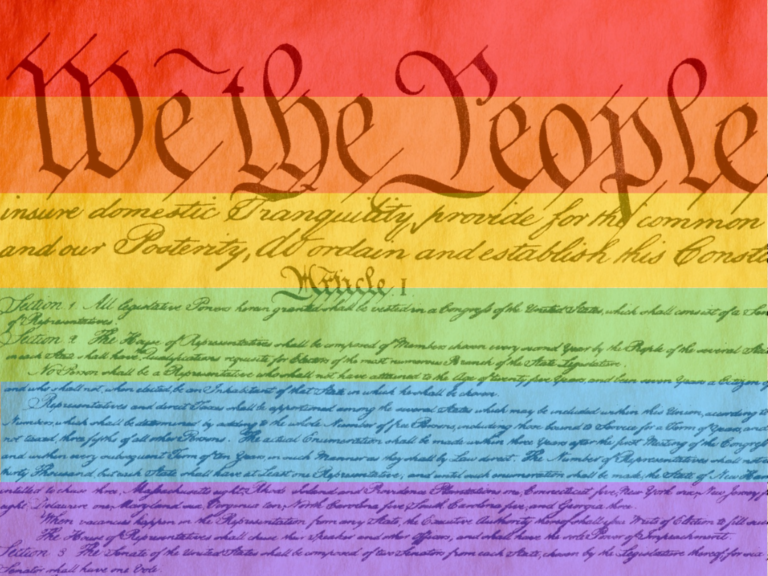 We the People
insure domestic Tranquility, provide for the common
and our Posterity, do ordain and establish this Consti
Article. I
Section 1 All legislative Powers herein granted shall be vested in a Congress of the United States, which shall consist of a Sen
of Representatives.
Section 2 The House of Representatives shall be composed of Members chosen every second Year by the People of the several Stat
in each State shall have Qualifications requisite for Electors of the most numerous Branch of the State Legislature.
No Person shall be a Representative who shall not have attained to the Age of twenty five Years, and been seven Years a Citizen o
and who shall not, when elected, be an Inhabitant of that State in which he shall be chosen.
Representatives and direct Taxes shall be apportioned among the several States which may be included within this Union, according to
Numbers, which shall be determined by adding to the whole Number of free Persons, including those bound to Service for a Term of Years, and
not taxed, three fifths of all other Persons. The actual Enumeration shall be made within three Years after the first Meeting of the Congress
and within every subsequent Term of ten Years, in such Manner as they shall by Law direct. The Number of Representatives shall not
thirty Thousand, but each State shall have at Least one Representative; and until such enumeration shall be made, the State of New Ham
entitled to chuse three, Massachusetts eight, Rhode Island and Providence Plantations one, Connecticut five, New York six, New Jersey
eight, Delaware one, Maryland six, Virginia ten, North Carolina five, South Carolina five, and Georgia three.
When vacancies happen in the Representation from any State, the Executive Authority thereof shall issue Writs of Election to fill
The House of Representatives shall chuse their Speaker and other Officers; and shall have the sole Power of Impeachment.
Section 3 The Senate of the United States shall be composed of two Senators from each State, chosen by the Legislature thereof for
Senator shall have one Vote.